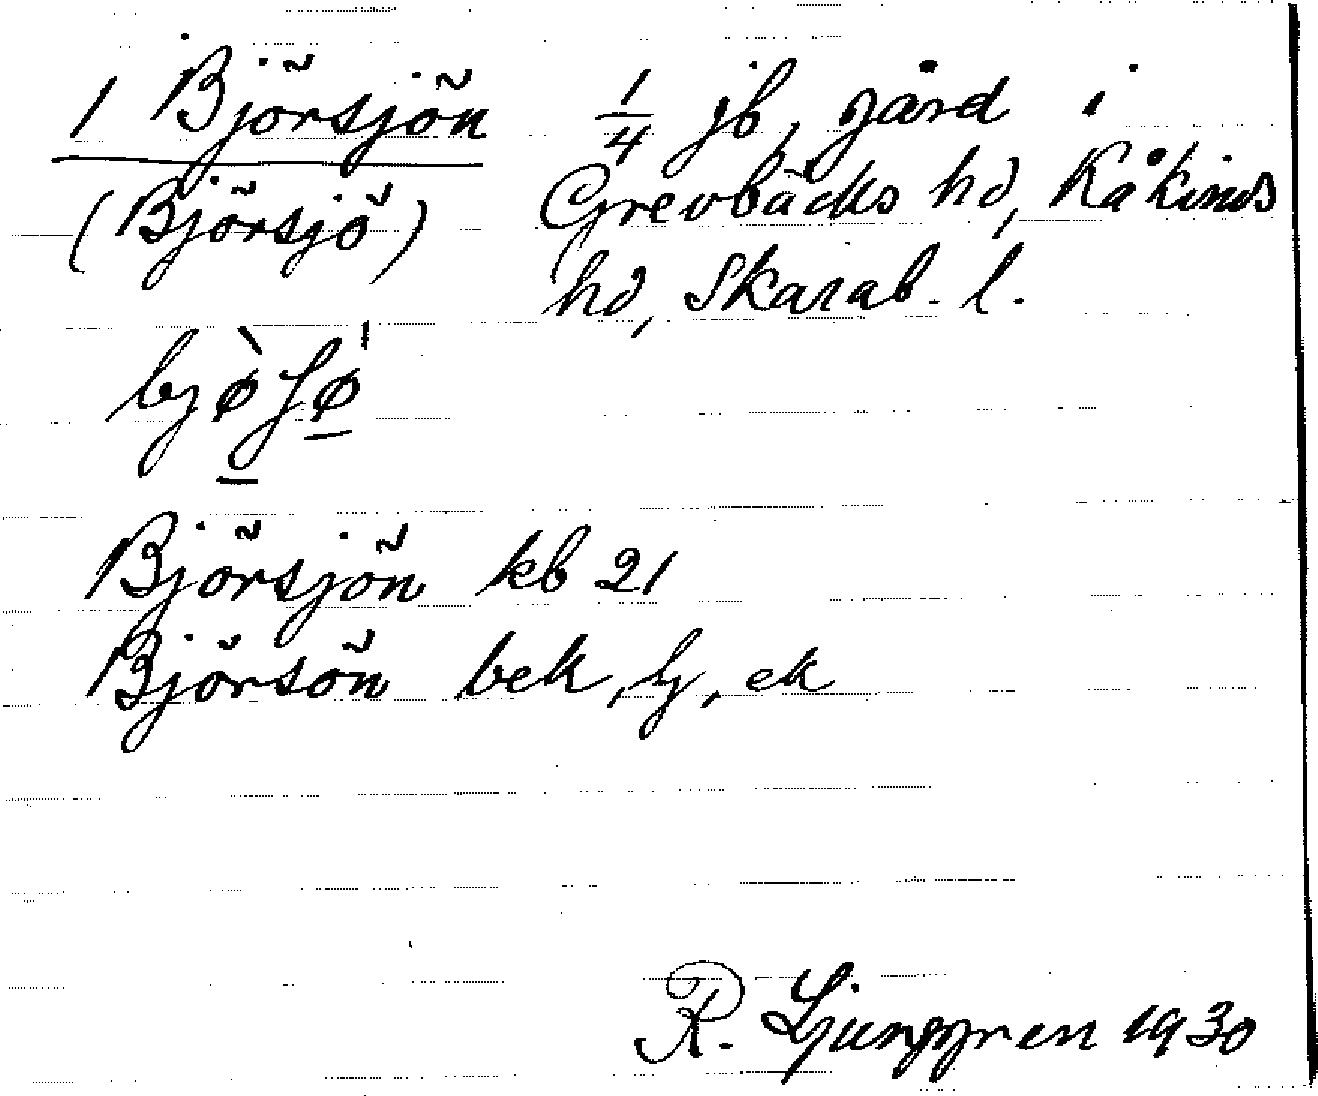 1 Björsjön 1/4 jb, gård i
(Björsjö) Grevbäcks hd, Kåkinds
hd, Skarab. l.
Björsjön kb 21
Björsön bek, ly, ek
R. Ljunggren 1930